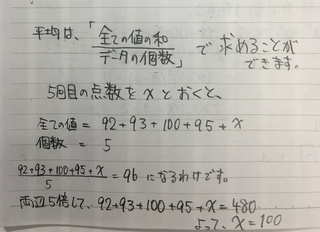 平均は、「全ての値の和/データの個数」で求めることが
できます。
5回目の点数をxとおくと、
全ての値 = 92+93+100+95+x
個数 = 5
92+93+100+95+x/5 = 96 になるわけです。
両辺5倍して、92+93+100+95+x=480
よって、x=100